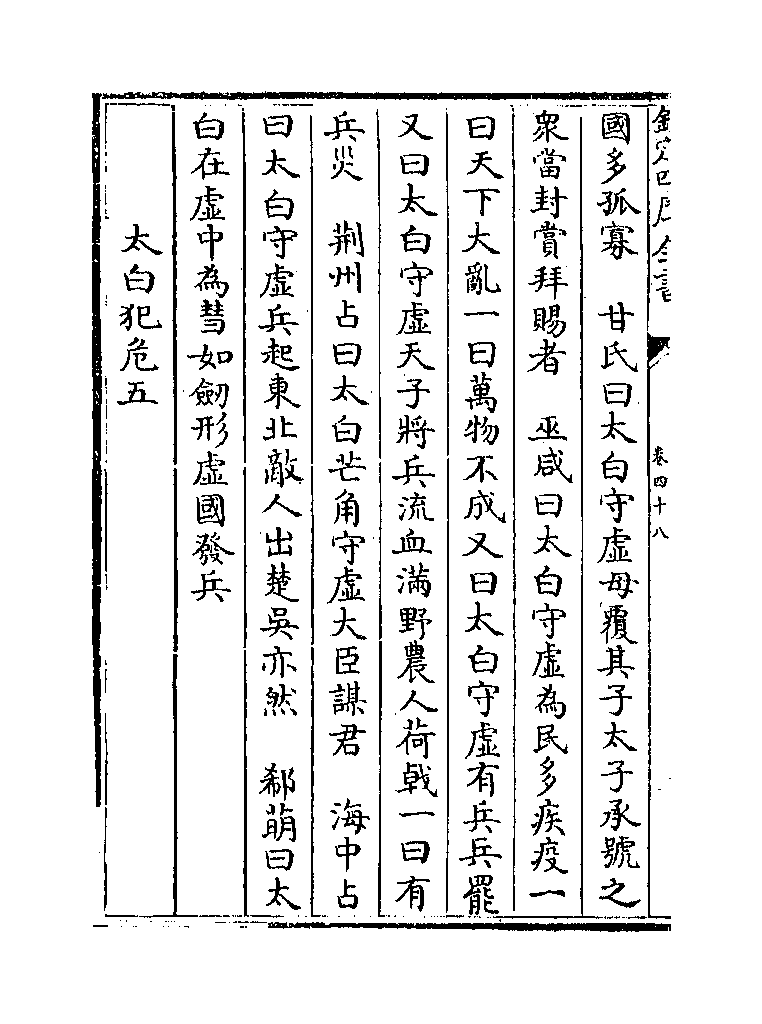 欽定四庫全書
卷四十八
國多孤寡　甘氏曰太白守虛母覆其子太子承號之
衆當封賞拜賜者　巫咸曰太白守虛為民多疾疫一
曰天下大亂一曰萬物不成又曰太白守虛有兵兵罷
又曰太白守虛天子將兵流血滿野農人荷戟一曰有
兵災　荆州占曰太白芒角守虛大臣謀君　海中占
曰太白守虛兵起東北敵人出楚吳亦然　郗萌曰太
白在虛中為彗如劒形虛國發兵
太白犯危五